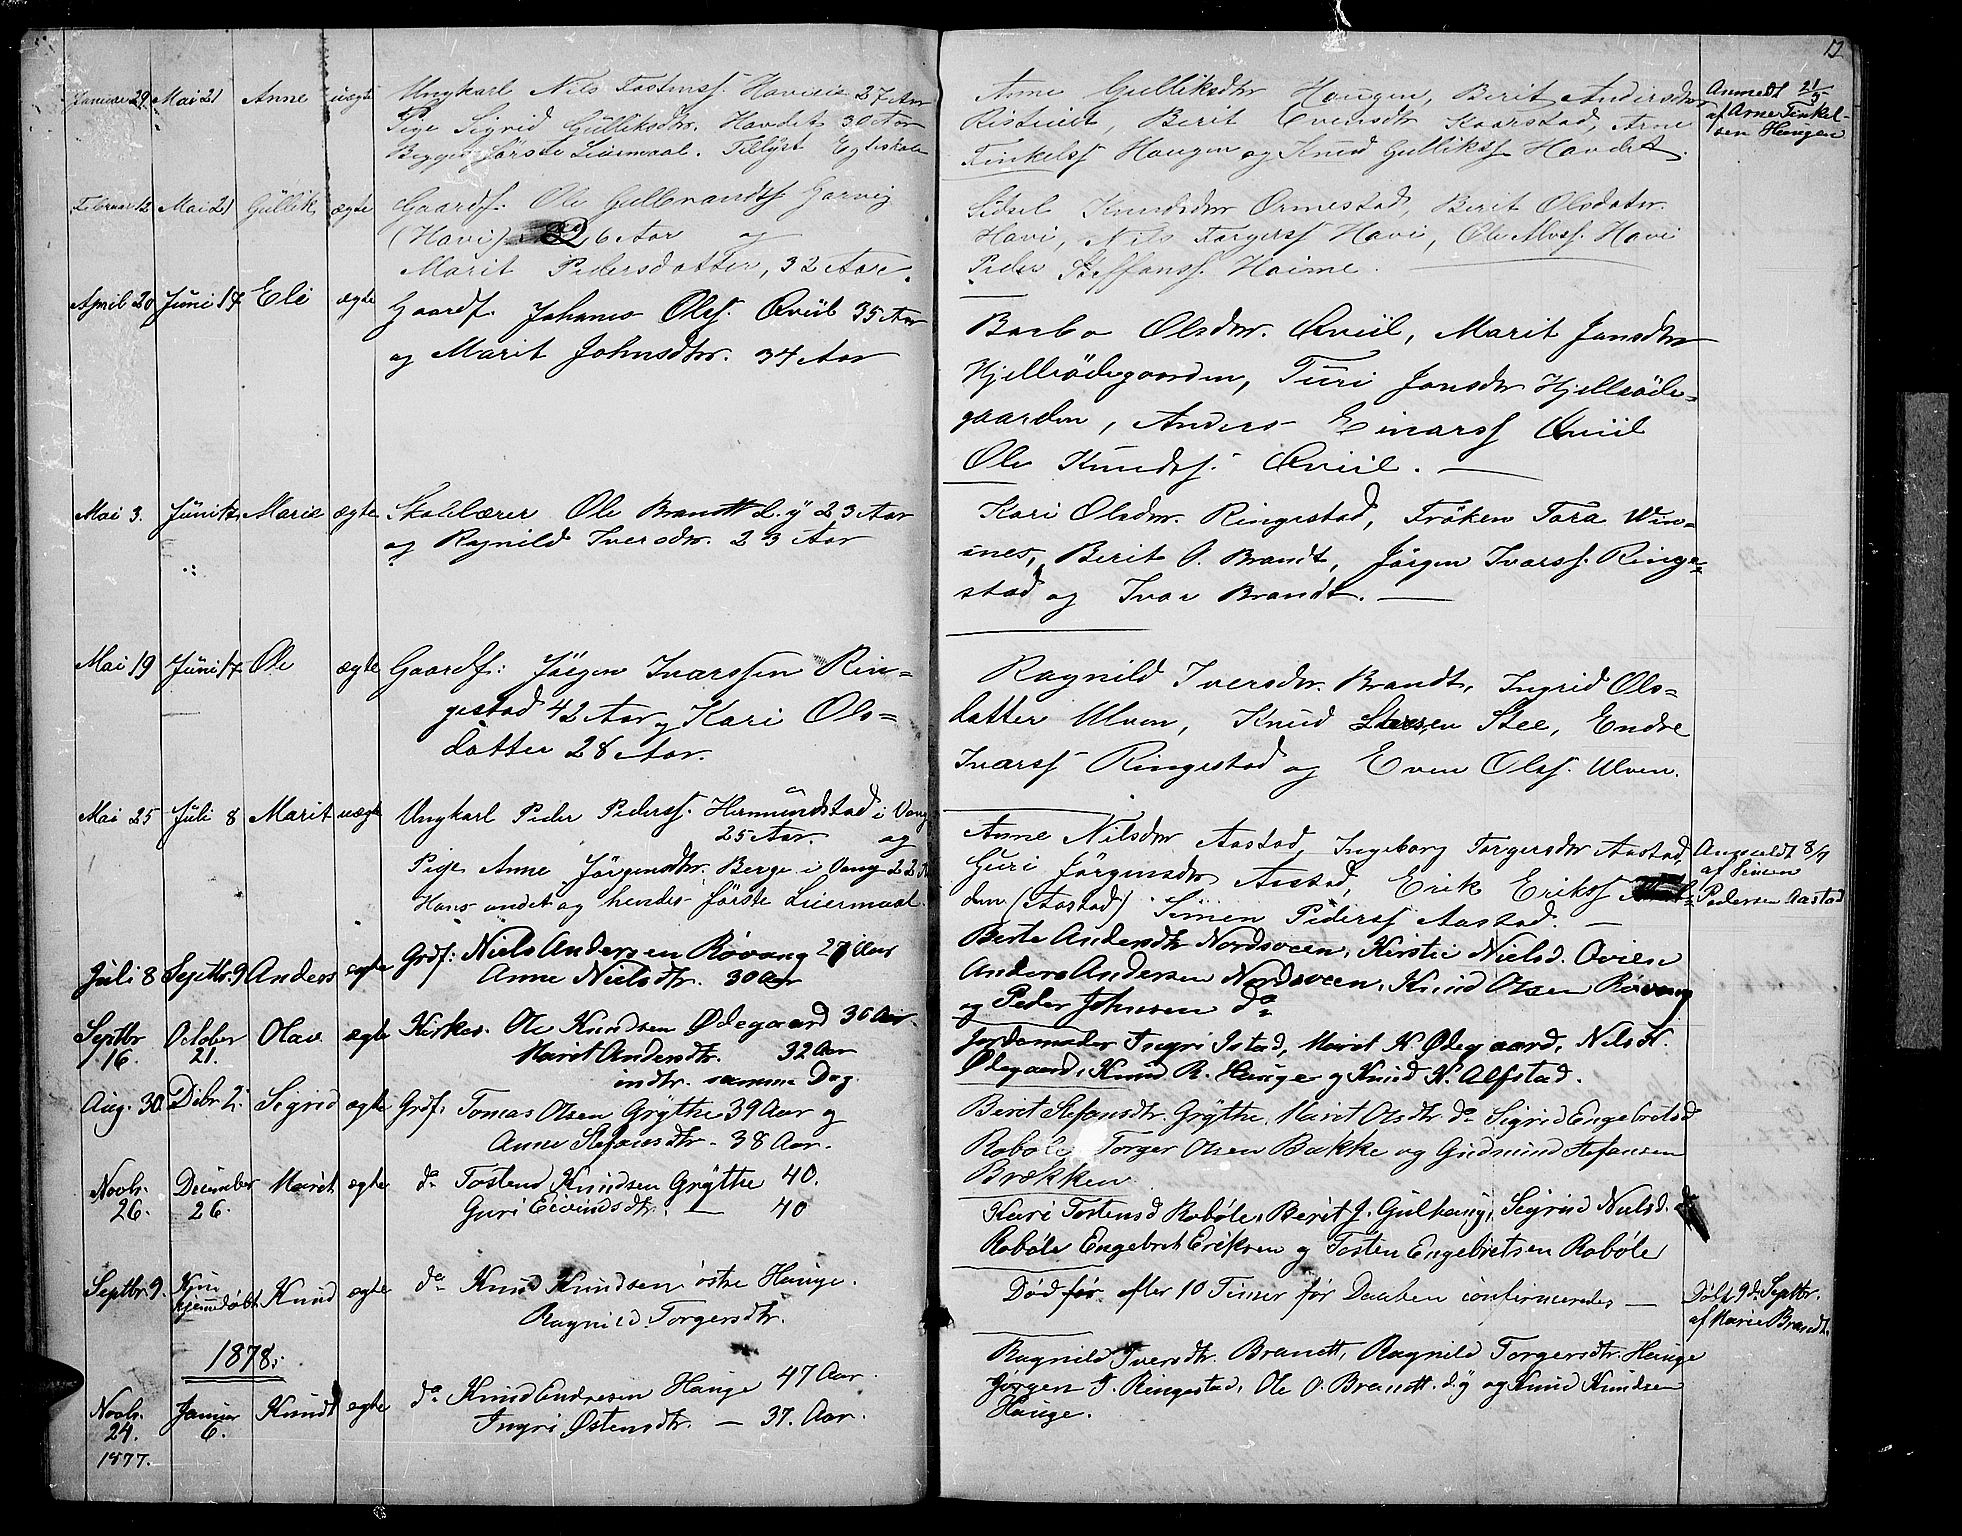 12
Januar 29 Mai 21 Anne uægte Ungkarl Nils Tostenss. Havieie 27 Aar
Pige Sigrid Gulliksdtr. Havdet 30 Aar
Begges første Leiermaal. Tillyst Egteskab
Anne Gulliksdtr Haugen, Berit Andersdtr
Ristuedt, Berit Evensdtr Kaarstad, Arne
Finkelss Haugen og Knud Gullikss Havdet.
Anmeldt 21/5
af Arne Finkel-
sen Haugen
Februar 12 Mai 21 Güllik ægte Gaardf: Ole Gulbrandss Garvig
(Havi) 26 Aar og
Marit Pedersdatter, 32 Aar.
Sidsel Knudsdtr Ormestad, Berit Olsdater
Havi, Nils Torgerss Havi, Ole Alvss. Havi
Peder Steffenss. Haime.
April 20 Juni 17 Eli ægte Gaardf. Johanes Olss. Qviil 35 Aar
og Marit Johnsdtr. 34 Aar
Barbo Olsdtr. Qviil, Marit Jonsdtr
Hjelleödegaarden, Turi Jonsdtr Hjelleöde-
gaarden, Anders Einarss Qviil
Ole Knudss. Qviil.
Mai 3. Juni 17 Marie ægte Skolelærer Ole Brandt d. y 23 Aar
og Ragnild Iversdtr. 23 Aar
Kari Olsdtr. Ringestad, Fröken Tora Win-
snes, Berit O. Brandt, Jörgen Ivarss. Ringe-
stad og Ivar Brandt.
Mai 19 Juni 17 Ole ægte Gaardf: Jörgen Ivarssen Rin-
gestad 42 Aar og Kari Ols-
datter 28 Aar.
Ragnild Iversdtr. Brandt, Ingrid Ols-
datter Ulven, Knud Larsen Stee, Endre
Ivarss Ringestad og Even Olss. Ulven.
Mai 25 Juli 8 Marit uægte Ungkarl Peder Pederss. Hermundstad i Vang
25 Aar. og
Pige Anne Jörgensdtr. Berge i Vang 22 A
Hans andet og hendes første Leiermaal.
Anne Nilsdtr Aastad, Ingeborg Torgersdtr Aastad,
Guri Jörgensdtr Aastad, Erik Erikss
den (Aastad) Simen Pederss Aastad.
Anmeldt 8/7
af Simen
Pedersen Aastad
Juli 8 Septbr. 9 Anders ægte Grdf: Niels Andersen Røvang 27 Aar
Anne Nielsdtr. 30 Aar
Berte Andersdtr Nordsveen, Kirstie Nielsd. Qviene
Anders Andersen Nordsveen, Knud Olsen Røvang
og Peder Johnsen do
Septbr 16. October 21. Olav ægte Kirkes. Ole Knudsen Ødegaard 36 Aar.
Marit Andersdtr. 32 Aar
indtr. samme Dag
Jordemoder Ingri Istad, Marit K. Ødegaard, Nils K.
Ødegaard, Knud R. Hauge og Knud K. Alfstad.
Aug. 30. Debr 2. Sigrid ægte Grdf: Tomas Olsen Grythe 39 Aar og
Anne Stefansdtr. 38 Aar.
Berit Stefansdtr. Grythe, Marit Olsdtr. do Sigrid Engebretsd
Robøle Torger Olsen Bakke og Gudmund Stefansen
Brækken
Novbr. 26. December 26. Marit ægte do Tostend Knudsen Grythe 40.
Guri Eivindsdtr. — 40
Kari Tostensd Robøle, Berit J. Gulhaug, Sigrid Nielsd.
Robøle Engebret Eriksen og Tosten Engebretsen Robøle
Septbr 9. Kun hjemmedøbt. Knud ægte do Knud Knudsen østre Hauge.
Ragnild Torgersdtr.
Død før efter 10 Timer før Daaben confirmeredes —
Døbt 9d Septbr.
af Marie Brandt.
1878.
Novbr. 24. 1877. Januar 6. Knudt ægte do Knud Endresen Hauge 47 Aar.
Ingri Østensdtr. — 37. Aar.
Ragnild Iversdtr. Brandt, Ragnild Torgersdtr. Hauge
Jørgen I. Ringestad, Ole O. Brandt. d.y og Knud Knudsen
Hauge.